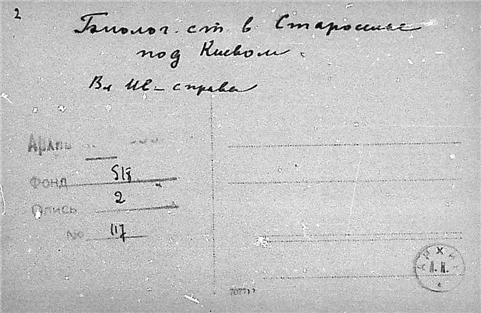 2
Биолог. ст. в Староселье
под Киевом.
Вл Ив - справа
Архив
Фонд 518
Опись 2
No 117
АРХИВ
А. Н.